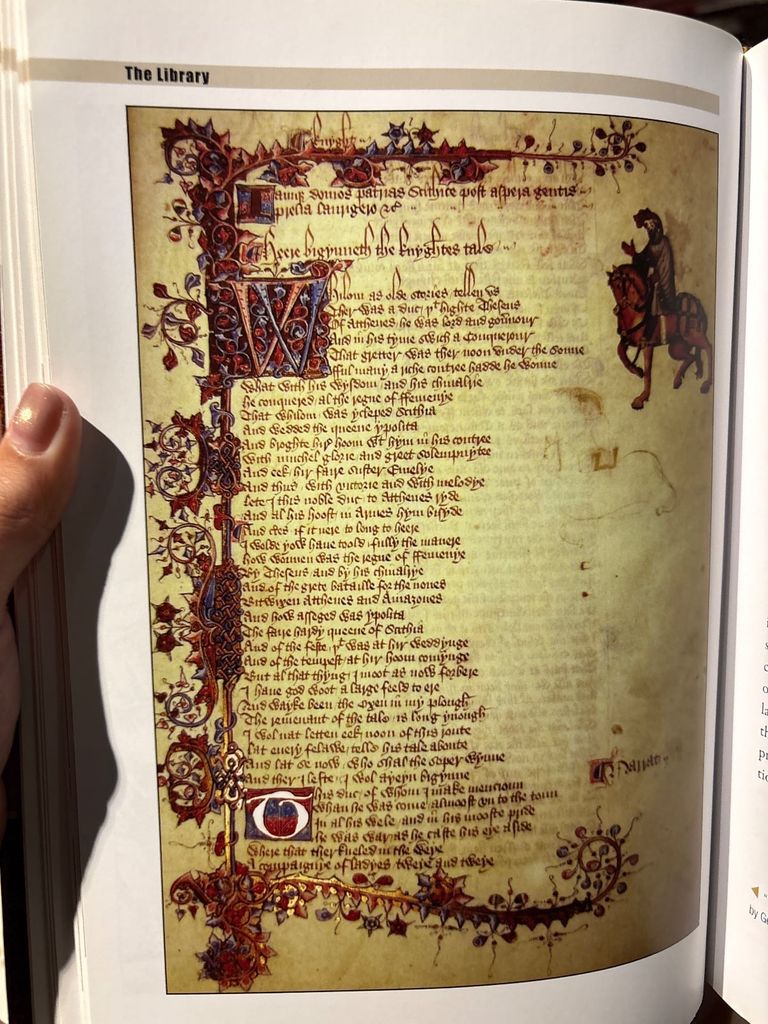 The Library
Knyght
Iamque domos patrias Scithice post aspera gentis
prelia laurigero &c
Heere bigynneth the knyghtes tale
Whilom as olde stories tellen vs
Ther was a duc þt highte Theseus
Of Atthenes he was lord and gouernour
And in his tyme swich a Conquerour
That gretter was ther noon vnder the sonne
fful many a riche contree hadde he wonne
What with his wysdom and his chiualrie
he conquered al the regne of ffemenye
That whilom was ycleped Scithia
And wedded the queene ypolita
And broghte hir hoom wt hym in his contree
With muchel glorie and greet solempnytee
And eek hir faire suster Emelye
And thus with victorie and with melodye
lete I this noble duc to Atthenes ryde
And al his hoost in Armes hym bisyde
And certes if it nere to long to heere
I wolde yow haue toold fully the manere
how wonnen was the regne of ffemenye
By Theseus and by his chiualrye
And of the grete bataille for the nones
Bitwixen Atthenes and Amazones
And how asseged was ypolita
The faire hardy queene of Scithia
And of the feste þt was at hir weddynge
And of the tempest at hir hoom comynge
But al that thyng I moot as now forbere
I haue god woot a large feeld to ere
And wayke been the Oxen in my plough
The remenant of the tale is long ynough
I wol nat letten eek noon of this route
lat euery felawe telle his tale aboute
And lat se now who shal the soper wynne
And ther I lefte I wol ayeyn bigynne
This duc of whom I make mencioun
Whan he was come almoost vn to the toun
In al his wele and in his mooste pride
he was war as he caste his eye aside
Where that ther kneled in the weye
A compaignye of ladyes tweye and tweye
Narrat
by Ge